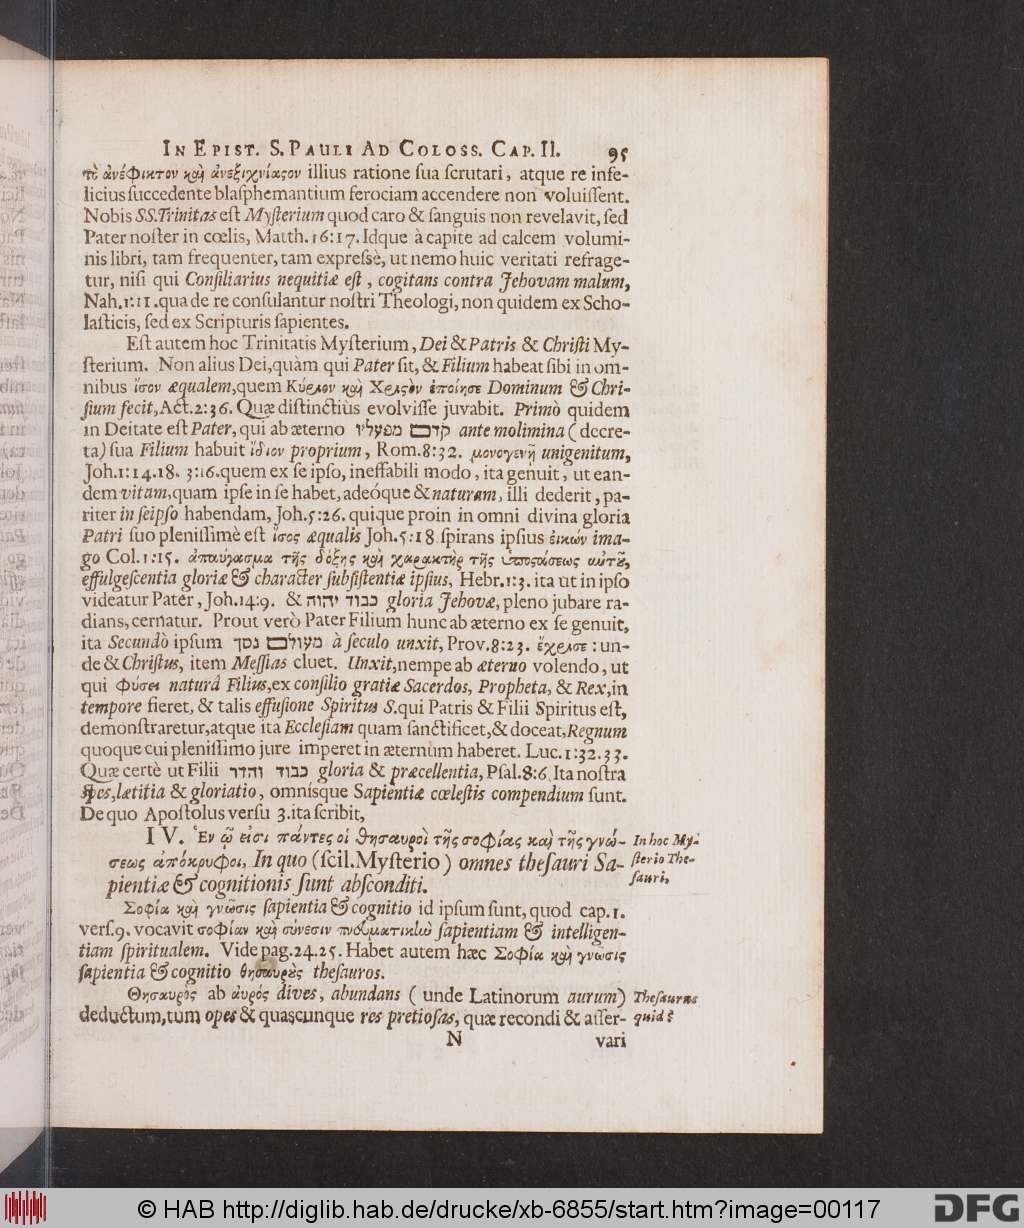 IN EPIST. S. PAULI AD COLOSS. CAP. II. 95
τὸ ἀνέφικτον καὶ ἀνεξιχνίαςον illius ratione ſua ſcrutari, atque re infe-
licius ſuccedente blaſphemantium ferociam accendere non voluiſſent.
Nobis SS. Trinitas eſt Myſterium quod caro & ſanguis non revelavit, ſed
Pater noſter in cœlis, Matth. 16:17. Idque à capite ad calcem volumi-
nis libri, tam frequenter, tam expreſsè, ut nemo huic veritati refrage-
tur, niſi qui Conſiliarius nequitiæ eſt, cogitans contra Jehovam malum,
Nah. 1:11. qua de re conſulantur noſtri Theologi, non quidem ex Scho-
laſticis, ſed ex Scripturis ſapientes.
Eſt autem hoc Trinitatis Myſterium, Dei & Patris & Chriſti My-
ſterium. Non alius Dei, quàm qui Pater ſit, & Filium habeat ſibi in om-
nibus ἴσον æqualem, quem Κύριον καὶ Χριςὸν ἐποίησε Dominum & Chri-
ſium fecit, Act. 2:36. Quæ diſtinctiùs evolviſſe juvabit. Primò quidem
in Deitate eſt Pater, qui ab æterno קדם מפעליו ante molimina (decre-
ta) ſua Filium habuit ἴδιον proprium, Rom. 8:32. μονογενῆ unigenitum,
Joh. 1:14. 18. 3:16. quem ex ſe ipſo, ineffabili modo, ita genuit, ut ean-
dem vitam, quam ipſe in ſe habet, adeóque & naturam, illi dederit, pa-
riter in ſeipſo habendam, Joh. 5:26. quique proin in omni divina gloria
Patri ſuo pleniſſimè eſt ἴσος æqualis Joh. 5:18 ſpirans ipſius εἰκών ima-
go Col. 1:15. ἀπαύγασμα τῆς δόξης καὶ χαρακτὴρ τῆς ὑποςάσεως αὐτοῦ,
effulgeſcentia gloriæ & character ſubſiſtentiæ ipſius, Hebr. 1:3. ita ut in ipſo
videatur Pater, Joh. 14:9. & כבוד יהוה gloria Jehovæ, pleno jubare ra-
dians, cernatur. Prout verò Pater Filium hunc ab æterno ex ſe genuit,
ita Secundò ipſum מעולם נסך à ſeculo unxit, Prov. 8:23. ἔχρισε: un-
de & Chriſtus, item Meſſias cluet. Unxit, nempe ab æterno volendo, ut
qui φύσει naturâ Filius, ex conſilio gratiæ Sacerdos, Propheta, & Rex, in
tempore fieret, & talis effuſione Spiritus S. qui Patris & Filii Spiritus eſt,
demonſtraretur, atque ita Eccleſiam quam ſanctificet, & doceat, Regnum
quoque cui pleniſſimo jure imperet in æternum haberet. Luc. 1:32. 33.
Quæ certè ut Filii כבוד והדר gloria & præcellentia, Pſal. 8:6. Ita noſtra
ſpes, lætitia & gloriatio, omníſque Sapientiæ cœleſtis compendium ſunt.
De quo Apoſtolus verſu 3. ita ſcribit,
IV. Ἐν ᾧ εἰσι πάντες οἱ θησαυροὶ τῆς σοφίας καὶ τῆς γνώ-
σεως ἀπόκρυφοι, In quo (ſcil. Myſterio) omnes theſauri Sa-
pientiæ & cognitionis ſunt abſconditi.
In hoc My-
ſterio The-
ſauri,
Σοφία καὶ γνῶσις ſapientia & cognitio id ipſum ſunt, quod cap. 1.
verſ. 9. vocavit σοφίαν καὶ σύνεσιν πνευματικὼ ſapientiam & intelligen-
tiam ſpiritualem. Vide pag. 24. 25. Habet autem hæc Σοφία καὶ γνωσις
ſapientia & cognitio θησαυρὲς theſauros.
Θησαυρὸς ab αὐρός dives, abundans (unde Latinorum aurum)
deductum, tum opes & quaſcunque res pretioſas, quæ recondi & aſſer-
Theſaurus
quid?
N vari
© HAB http://diglib.hab.de/drucke/xb-6855/start.htm?image=00117
DFG